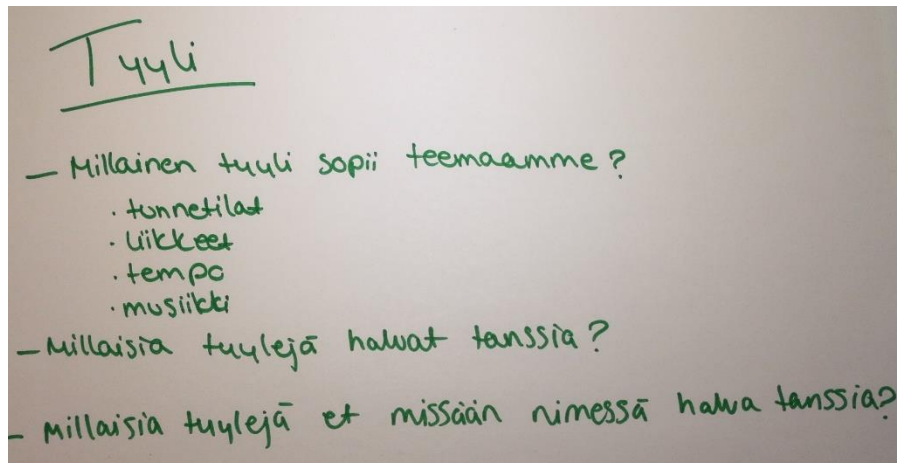 Tyyli
- Millainen tyyli sopii teemaamme?
· tunnetilat
· liikkeet
· tempo
· musiikki
- Millaisia tyylejä haluat tanssia?
- Millaisia tyylejä et missään nimessä halua tanssia?